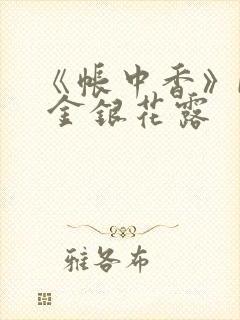 《帐中香》
金银花露
雅各布